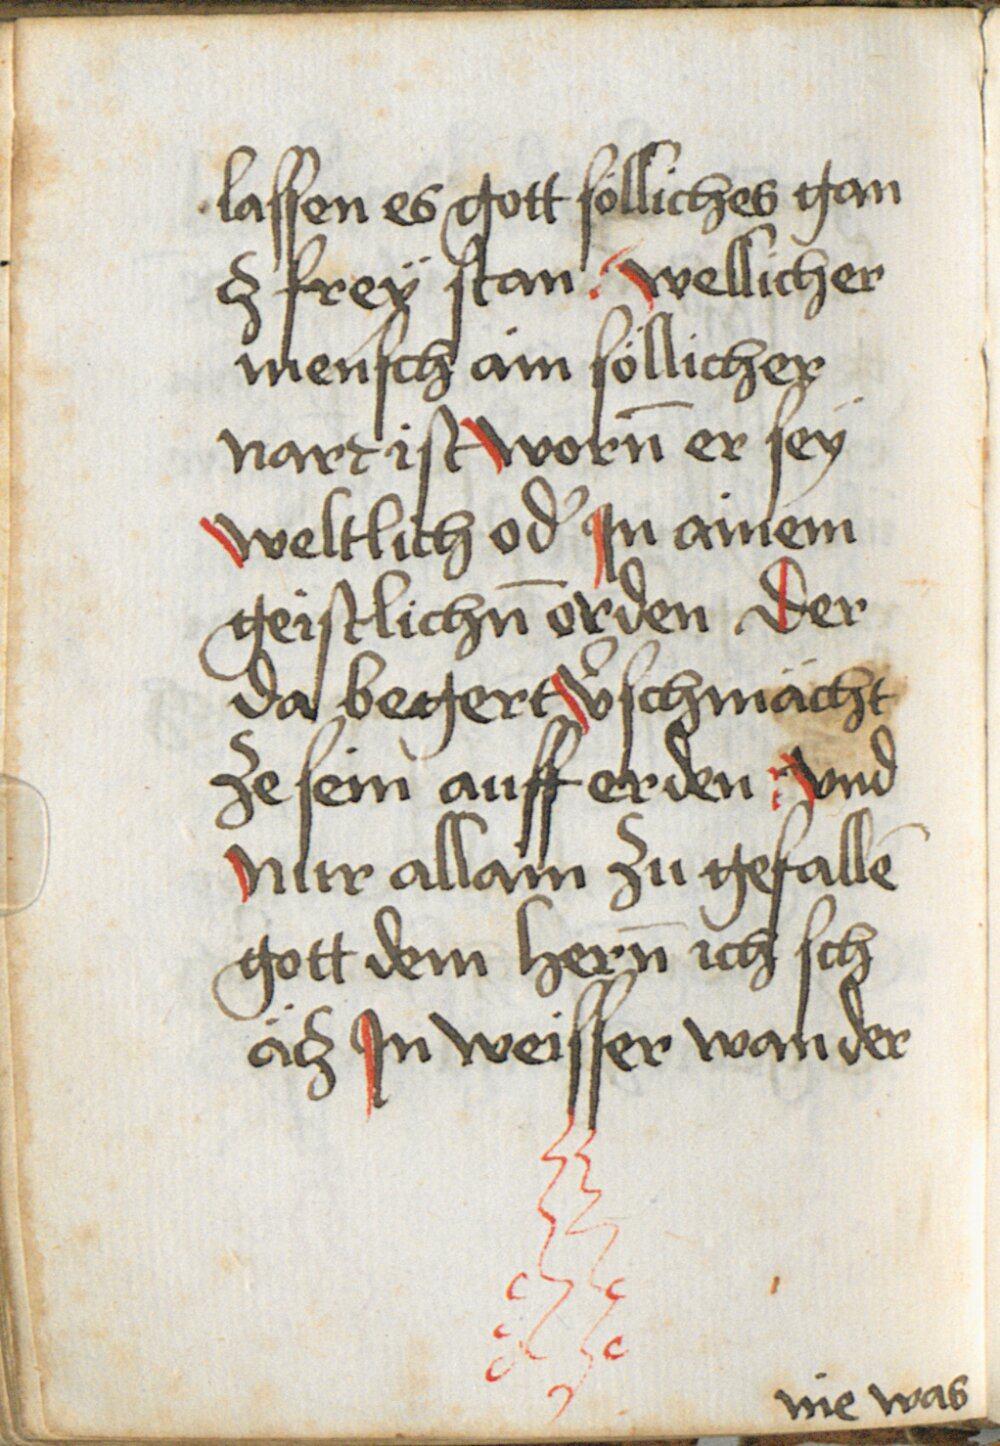 lassen es gott söllicheß gan
cz freÿ stan : wellicher
mensch ain söllicher
nart ist worn̄ er seÿ
weltlich od' In ainem
geistlichn̄ orden Der
da begert v̾schmächt
ze sein auff erden : vnd
nur allain zu gefallē
gott dem hern̄ ich sch
äcz In weisser wan der
nie was